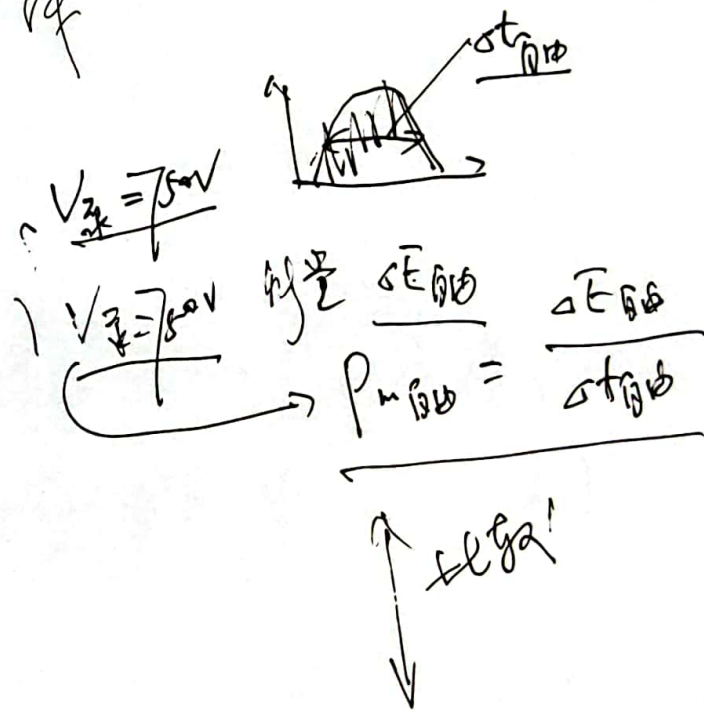 Δt自由
V泵=750V
V泵=750V 能量 ΔE自由
Pm自由 = ΔE自由 / Δt自由
比较!